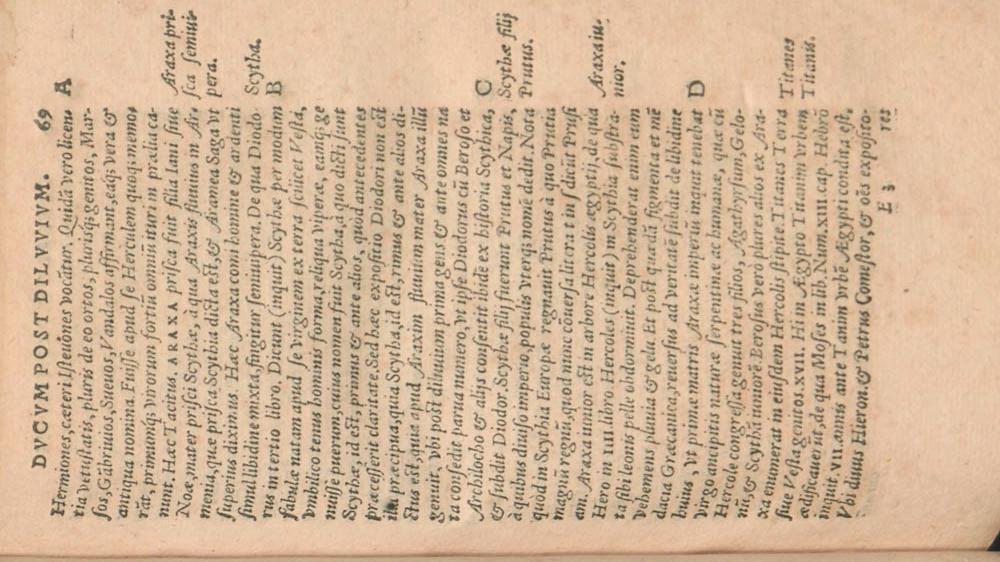 DVCVM POST DILVVIVM. 69
Hermiones, cæteri Istæuones vocãtur. Quidã vero licen A
tia vetustatis, pluris de eo ortos, plurisq; genitos, Mar-
sos, Gãbriuios, Sueuos, Vandalos affirmant, eaq; vera &
antiqua nomina. Fuisse apud se Herculem quoq; memo-
rãt, primumq; virorum fortiũ omniũ ituri in prælia ca-
nunt. Hæc Tacitus. ARAXA prisca fuit filia Iani siue Araxa pri-
Noæ, mater prisci Scythæ, à qua Araxis fluuius in Ar- sca semiui-
menia, quæ prisca Scythia dicta est, & Aramea Saga vt pera.
superius diximus. Hæc Araxa cum homine & ardenti
simul libidine mixta, fingitur semiuipera. De qua Diodo Scytha.
rus in tertio libro. Dicunt (inquit) Scythæ per modum B
fabulæ natam apud se virginem ex terra scilicet Vesta,
vmbilico tenus hominis forma, reliqua viperæ, eamq; ge
nuisse puerum, cuius nomen fuit Scytha, à quo dicti sunt
Scythæ, id est, primus & ante alios, quod antecedentes
præcesserit claritate. Sed hæc expositio Diodori non est
ita præcipua, quia Scytha, id est, primus & ante alios di-
ctus est, quia apud Araxim fluuium mater Araxa illũ
genuit, vbi post diluuium prima gens & ante omnes na
ta consedit parua numero, vt ipse Diodorus cũ Beroso et
Archilocho & alijs consentit ibidẽ ex historia Scythica, C
& subdit Diodor. Scythæ filij fuerunt Prutus et Napis, Scythæ filij
à quibus diuiso imperio, populis vterq; nomẽ dedit. Nota Prutus.
quòd in Scythia Europæ regnauit Prutus à quo Prutia
magnũ regnũ, quod nunc conuersa litera t in s dicũt Prussi
am. Araxa iunior est in arbore Herculis ægyptij, de qua Araxa iu-
Hero in IIII libro Hercules (inquit) in Scythia substra- nior.
ta sibi leonis pelle obdormiuit. Deprehenderat enim eum
vehemens pluuia & gelu. Et post quædã figmenta et mẽ
dacia Græcanica, reuersus ad veritatẽ subdit de libidine
huius, vt prima matris Araxæ imperiũ inquit tenebat D
Virgo ancipitis naturæ serpentinæ ac humanæ, quæ cũ
Hercole congressa genuit tres filios, Agathyrsum, Gelo-
nũ, & Scythã iuniorẽ. Berosus verò plures alios ex Ara-
xa enumerat in eiusdem Herculis stipite. Titanes Terra Titanes
siue Vesta genitos. XVII. Hi in Ægypto Titanim vrbem Titanis.
ædificauerũt, de qua Moses in lib. Num. XIII. cap. Hebrõ
inquit, VII. annis ante Tanim vrbẽ Ægypti condita est,
Vbi diuus Hieron. & Petrus Comestor, & oẽs exposito-
E 3 res